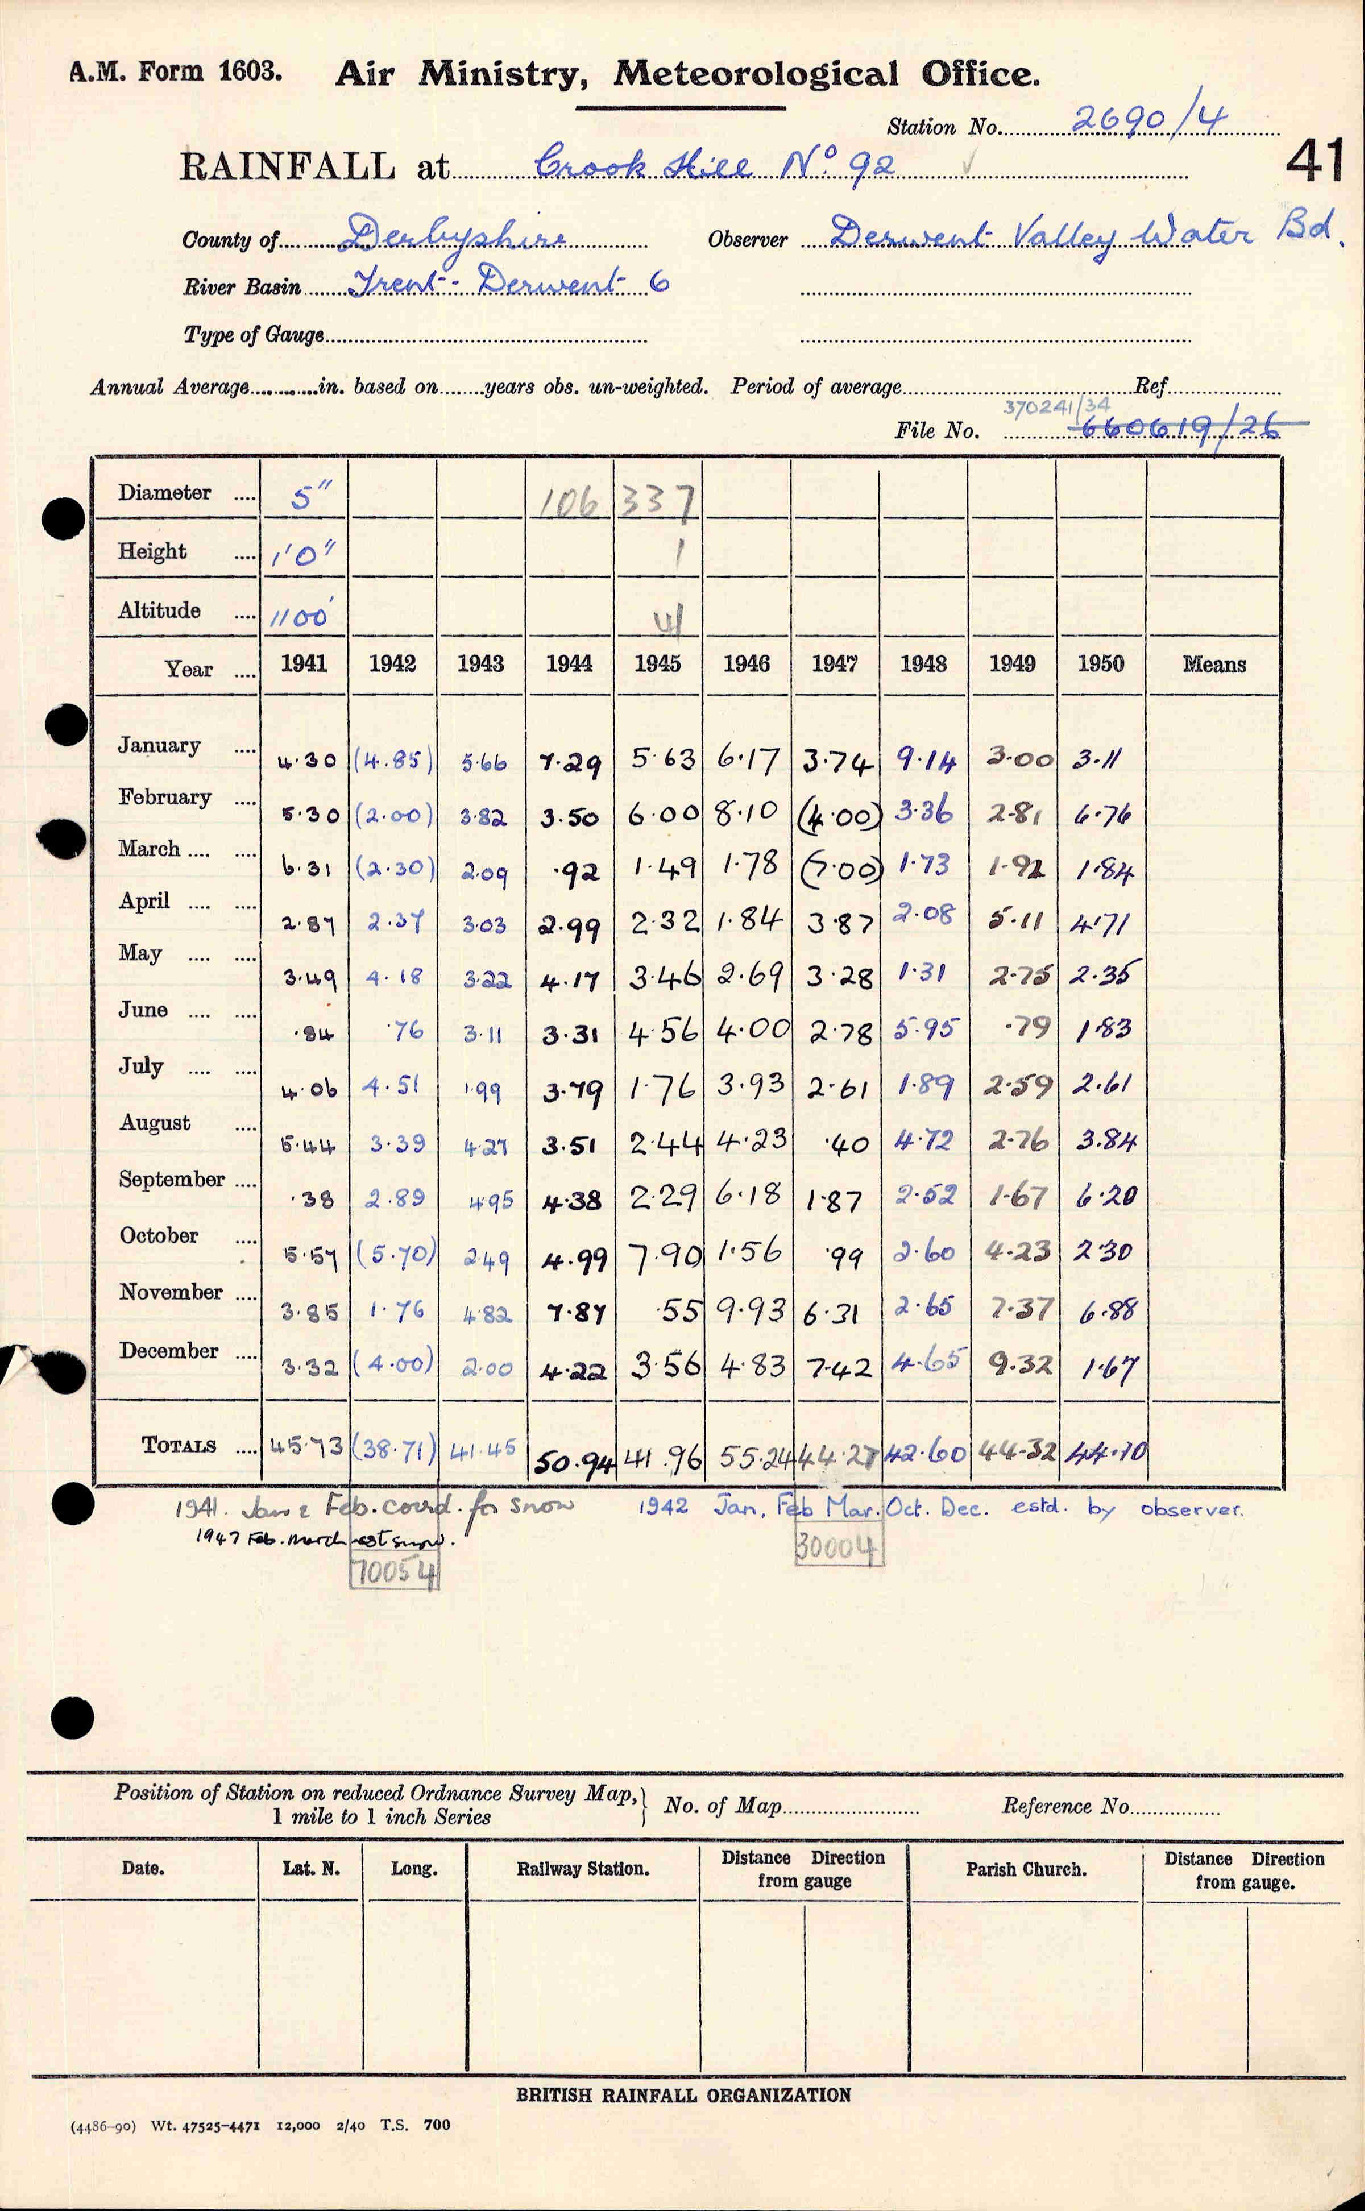 A.M. Form 1603. Air Ministry, Meteorological Office.
Station No. 2690/4
41
RAINFALL at Crook Hill No. 92
County of Derbyshire Observer Derwent Valley Water Bd.
River Basin Trent - Derwent 6
Type of Gauge
Annual Average in. based on years obs. un-weighted. Period of average Ref
370241/34
File No. 660619/26
Diameter .... 5" 106 337
Height .... 1'0" 1
Altitude .... 1100'
Year .... 1941 1942 1943 1944 1945 1946 1947 1948 1949 1950 Means
January .... 4.30 (4.85) 5.66 7.29 5.63 6.17 3.74 9.14 3.00 3.11
February .... 5.30 (2.00) 3.82 3.50 6.00 8.10 (4.00) 3.36 2.81 6.76
March .... .... 6.31 (2.30) 2.09 .92 1.49 1.78 (7.00) 1.73 1.92 1.84
April .... .... 2.87 2.37 3.03 2.99 2.32 1.84 3.87 2.08 5.11 4.71
May .... .... 3.49 4.18 3.22 4.17 3.46 2.69 3.28 1.31 2.75 2.35
June .... .... .84 .76 3.11 3.31 4.56 4.00 2.78 5.95 .79 1.83
July .... .... 4.06 4.51 1.99 3.79 1.76 3.93 2.61 1.89 2.59 2.61
August .... 5.44 3.39 4.27 3.51 2.44 4.23 .40 4.72 2.76 3.84
September .... .38 2.89 4.95 4.38 2.29 6.18 1.87 2.52 1.67 6.20
October .... 5.57 (5.70) 2.49 4.99 7.90 1.56 .99 2.60 4.23 2.30
November .... 3.85 1.76 4.82 7.87 .55 9.93 6.31 2.65 7.37 6.88
December .... 3.32 (4.00) 2.00 4.22 3.56 4.83 7.42 4.65 9.32 1.67
TOTALS .... 45.73 (38.71) 41.45 50.94 41.96 55.24 44.27 42.60 44.32 44.10
1941. Jan & Feb. corrd. for snow 1942 Jan, Feb Mar. Oct. Dec. estd. by observer.
1947 Feb. March est snow.
30004
70054
Position of Station on reduced Ordnance Survey Map, 1 mile to 1 inch Series } No. of Map Reference No.
Date. Lat. N. Long. Railway Station. Distance Direction from gauge Parish Church. Distance Direction from gauge.
BRITISH RAINFALL ORGANIZATION
(4486-90) Wt. 47525-4471 12,000 2/40 T.S. 700